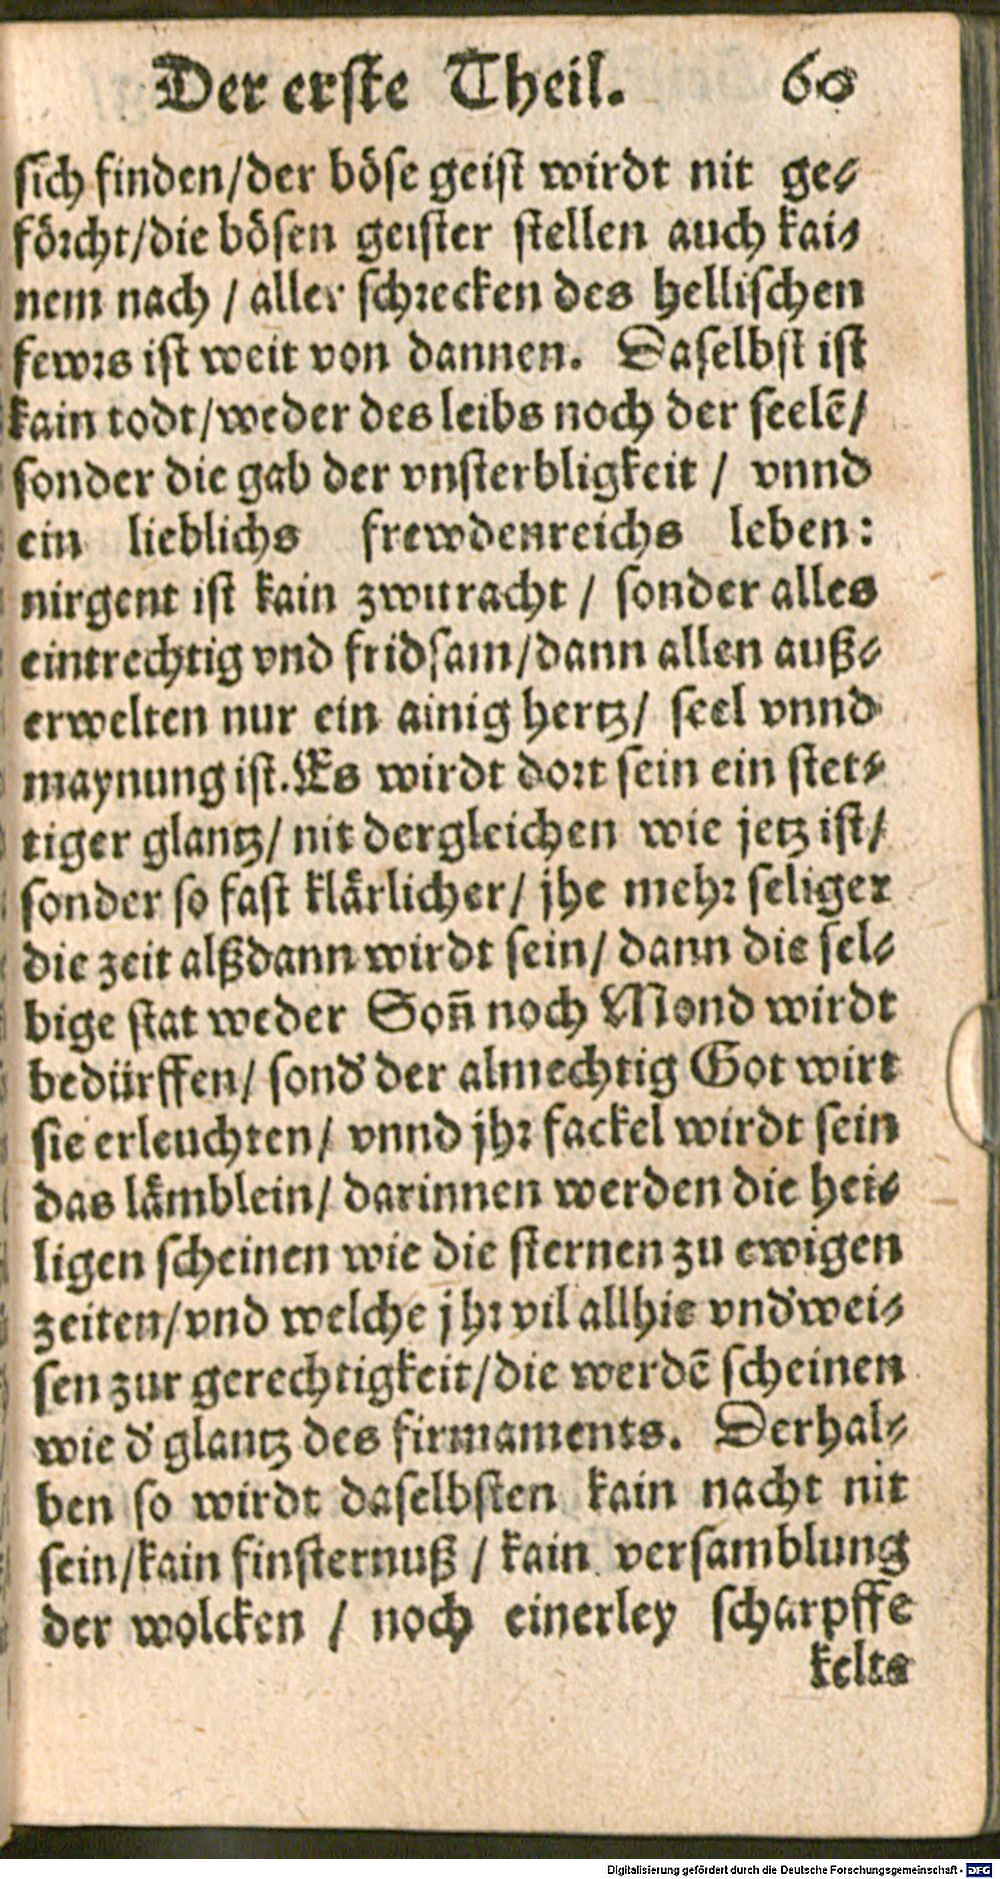 Der erste Theil. 60
sich finden/der böse geist wirdt nit ge-
förcht/die bösen geister stellen auch kai-
nem nach / aller schrecken des hellischen
fewrs ist weit von dannen. Daselbst ist
kain todt/weder des leibs noch der seelē/
sonder die gab der vnsterbligkeit / vnnd
ein lieblichs frewdenreichs leben:
nirgent ist kain zwitracht / sonder alles
eintrechtig vnd fridsam/dann allen auß-
erwelten nur ein ainig hertz/ seel vnnd
maynung ist. Es wirdt dort sein ein stet-
tiger glantz/ nit dergleichen wie jetz ist/
sonder so fast klärlicher/ jhe mehr seliger
die zeit alßdann wirdt sein/ dann die sel-
bige stat weder Soñ noch Mond wirdt
bedürffen/ sond' der almechtig Got wirt
sie erleuchten/ vnnd jhr fackel wirdt sein
das lämblein/ darinnen werden die hei-
ligen scheinen wie die sternen zu ewigen
zeiten/vnd welche jhr vil allhie vnd'wei-
sen zur gerechtigkeit/die werdē scheinen
wie d' glantz des firmaments. Derhal-
ben so wirdt daselbsten kain nacht nit
sein/kain finsternuß / kain versamblung
der wolcken / noch einerley scharpffe
kelte
Digitalisierung gefördert durch die Deutsche Forschungsgemeinschaft - DFG